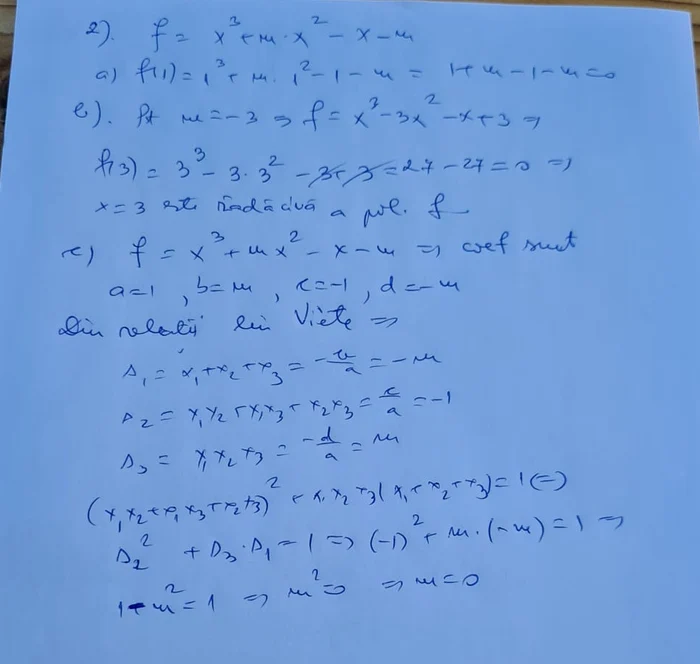 2). f = x³ + m·x² - x - m
a) f(1) = 1³ + m·1² - 1 - m = 1 + m - 1 - m = 0
b). Pt m = -3 ⇒ f = x³ - 3x² - x + 3 ⇒
f(3) = 3³ - 3·3² - 3 + 3 = 27 - 27 = 0 ⇒
x = 3 este rădăcină a pol. f
c) f = x³ + mx² - x - m ⇒ coef sunt
a = 1, b = m, c = -1, d = -m
Din relatii lui Viète ⇒
s₁ = x₁ + x₂ + x₃ = -b/a = -m
s₂ = x₁x₂ + x₁x₃ + x₂x₃ = c/a = -1
s₃ = x₁x₂x₃ = -d/a = m
(x₁x₂ + x₁x₃ + x₂x₃)² + x₁x₂x₃(x₁ + x₂ + x₃) = 1 (=)
s₂² + s₃·s₁ = 1 ⇒ (-1)² + m·(-m) = 1 ⇒
1 - m² = 1 ⇒ m² = 0 ⇒ m = 0